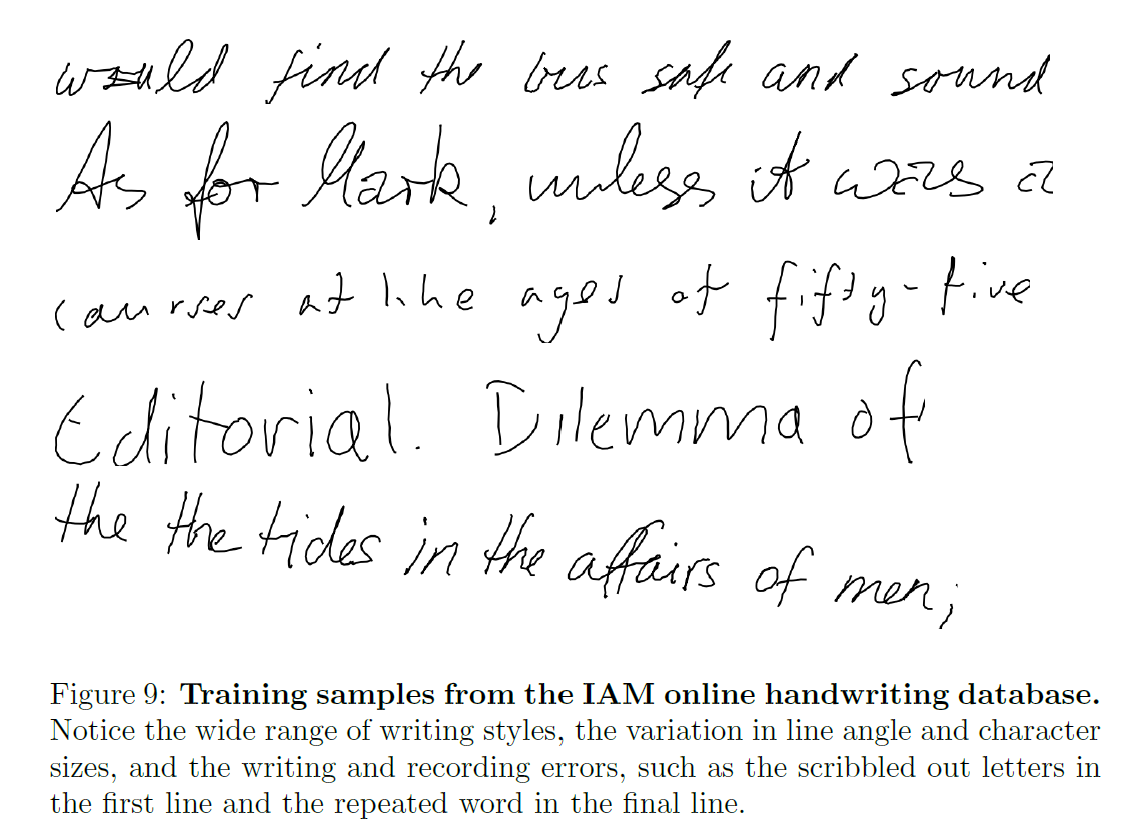 would find the bus safe and sound
As for Mark, unless it was a
courses at the ages of fifty-five
Editorial. Dilemma of
the the tides in the affairs of men;
Figure 9: Training samples from the IAM online handwriting database.
Notice the wide range of writing styles, the variation in line angle and character
sizes, and the writing and recording errors, such as the scribbled out letters in
the first line and the repeated word in the final line.